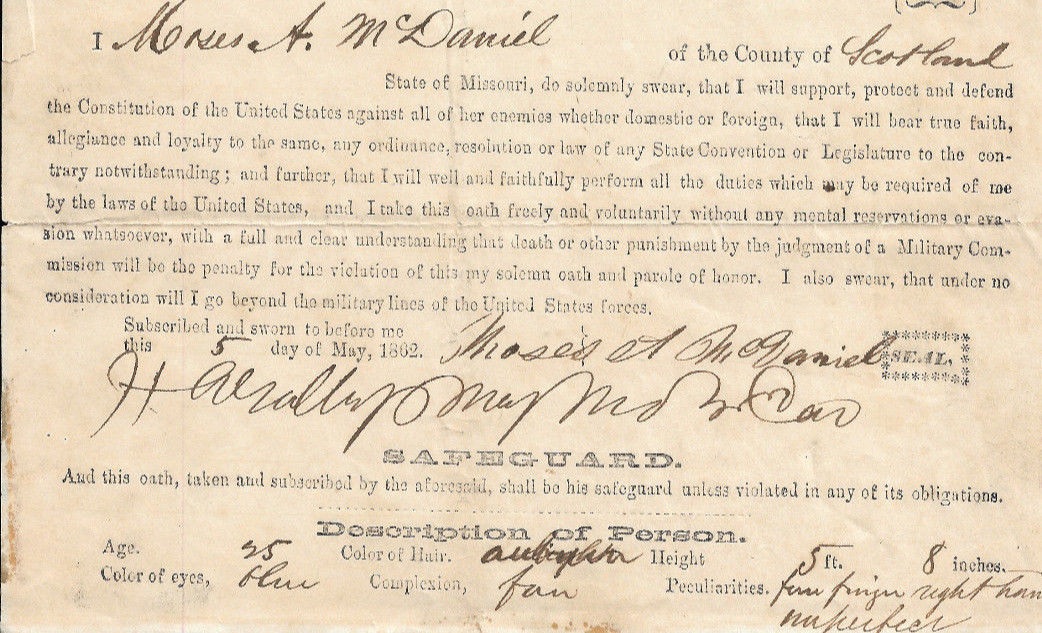 I Moses A. McDaniel of the County of Scotland
State of Missouri, do solemnly swear, that I will support, protect and defend
the Constitution of the United States against all of her enemies whether domestic or foreign, that I will bear true faith,
allegiance and loyalty to the same, any ordinance, resolution or law of any State Convention or Legislature to the con-
trary notwithstanding; and further, that I will well and faithfully perform all the duties which may be required of me
by the laws of the United States, and I take this oath freely and voluntarily without any mental reservations or eva-
sion whatsoever, with a full and clear understanding that death or other punishment by the judgment of a Military Com-
mission will be the penalty for the violation of this my solemn oath and parole of honor. I also swear, that under no
consideration will I go beyond the military lines of the United States forces.
Subscribed and sworn to before me
this 5 day of May, 1862. Moses A McDaniel SEAL.
SAFEGUARD.
And this oath, taken and subscribed by the aforesaid, shall be his safeguard unless violated in any of its obligations.
Description of Person.
Age. 25 Color of Hair. Height 5 ft. 8 inches.
Color of eyes, blue Complexion, fair Peculiarities. fore finger right han
imperfect